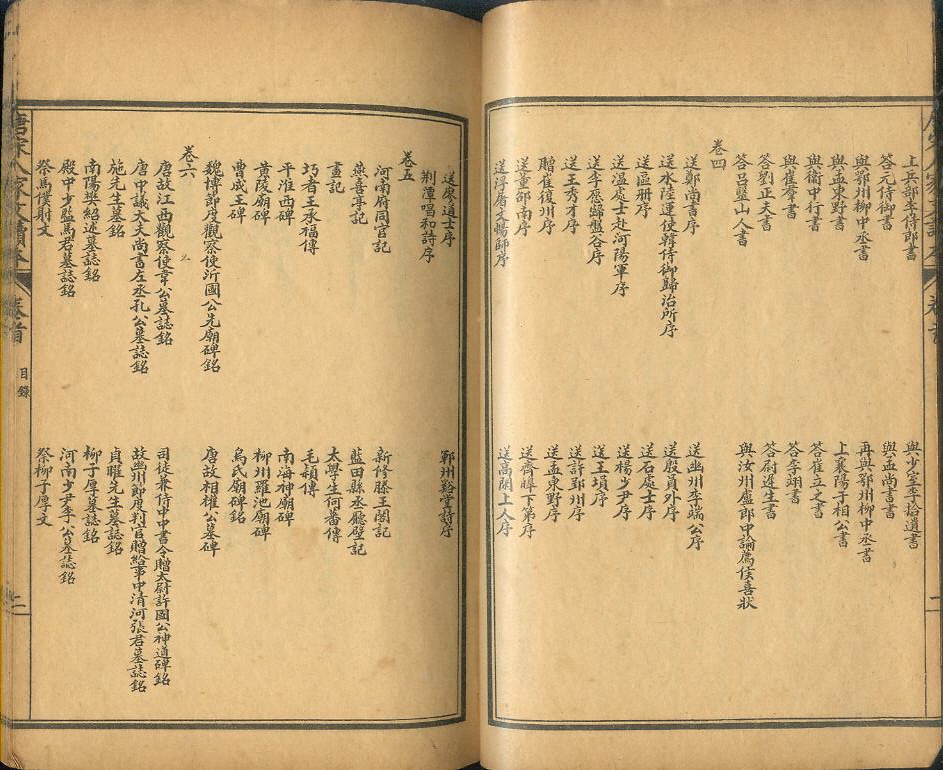 上兵部李侍郎書
與少室李拾遺書
答元侍御書
與孟尚書書
與鄂州柳中丞書
再與鄂州柳中丞書
與孟東野書
上襄陽于相公書
與衛中行書
答崔立之書
與崔羣書
答李翊書
答劉正夫書
答尉遲生書
答呂毉山人書
與汝州盧郎中論薦侯喜狀
卷四
送鄭尚書序
送幽州李端公序
送水陸運使韓侍御歸治所序
送殷員外序
送區冊序
送石處士序
送溫處士赴河陽軍序
送楊少尹序
送李愿歸盤谷序
送王塤序
送王秀才序
送許郢州序
贈崔復州序
送孟東野序
送董邵南序
送齊皞下第序
送浮屠文暢師序
送高閑上人序
送廖道士序
鄆州谿堂詩序
荊潭唱和詩序
卷五
河南府同官記
新修滕王閣記
燕喜亭記
藍田縣丞廳壁記
畫記
太學生何蕃傳
圬者王承福傳
毛穎傳
平淮西碑
南海神廟碑
黃陵廟碑
柳州羅池廟碑
曹成王碑
烏氏廟碑銘
魏博節度觀察使沂國公先廟碑銘
唐故相權公墓碑
卷六
唐故江西觀察使韋公墓誌銘
司徒兼侍中中書令贈太尉許國公神道碑銘
唐中議大夫尚書左丞孔公墓誌銘
故幽州節度判官贈給事中清河張君墓誌銘
施先生墓銘
貞曜先生墓誌銘
南陽樊紹述墓誌銘
柳子厚墓誌銘
殿中少監馬君墓誌銘
河南少尹李公墓誌銘
祭馬僕射文
祭柳子厚文
唐宋八家文讀本
卷首
目錄
二